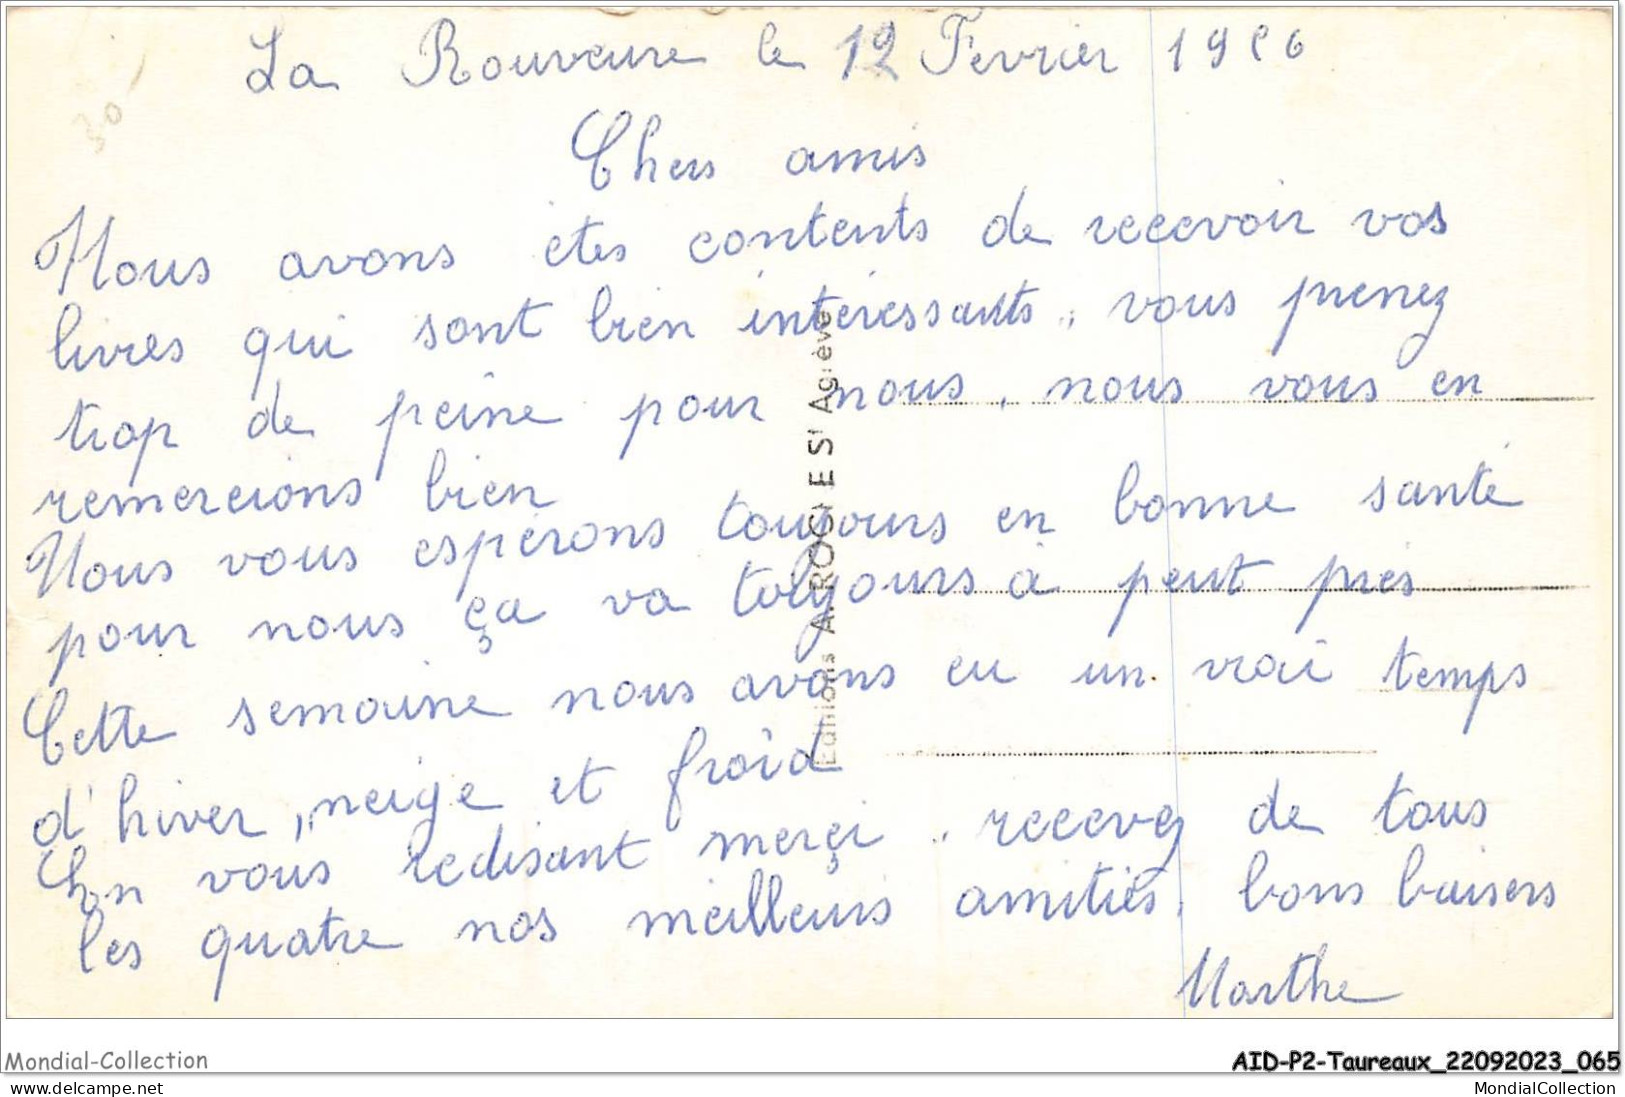 La Rouveure le 12 Fevrier 19
Chers amis
Nous avons étés contents de recevoir vos
livres qui sont bien intéressants, vous prenez
trop de peine pour nous, nous vous en
remercions bien
Nous vous espérons toujours en bonne santé
pour nous ça va toujours à peut près
Cette semaine nous avons eu un vrai temps
d'hiver, neige et froid
En vous redisant merçi, recevez de tous
les quatre nos meilleurs amitiés, bons baisers
Marthe
30
Editions A. ROCHE St Agrève
Mondial-Collection
AID-P2-Taureaux_22092023_065
www.delcampe.net
MondialCollection